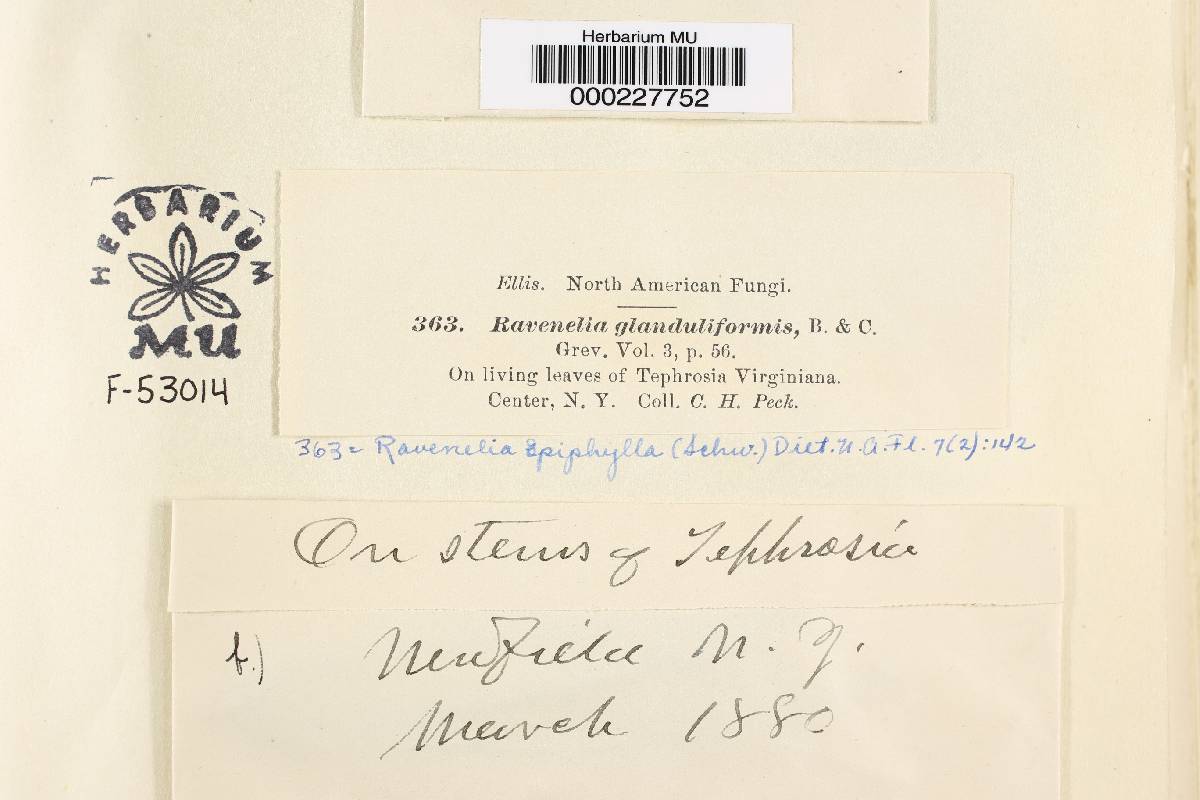 Herbarium MU
000227752
HERBARIUM
MU
F-53014
Ellis. North American Fungi.
363. Ravenelia glanduliformis, B. & C.
Grev. Vol. 3, p. 56.
On living leaves of Tephrosia Virginiana.
Center, N. Y. Coll. C. H. Peck.
363= Ravenelia Epiphylla (Schw.) Diet. N. A. Fl. 7(2):142
On stems of Tephrosia
b.) Newfield N. J.
March 1880